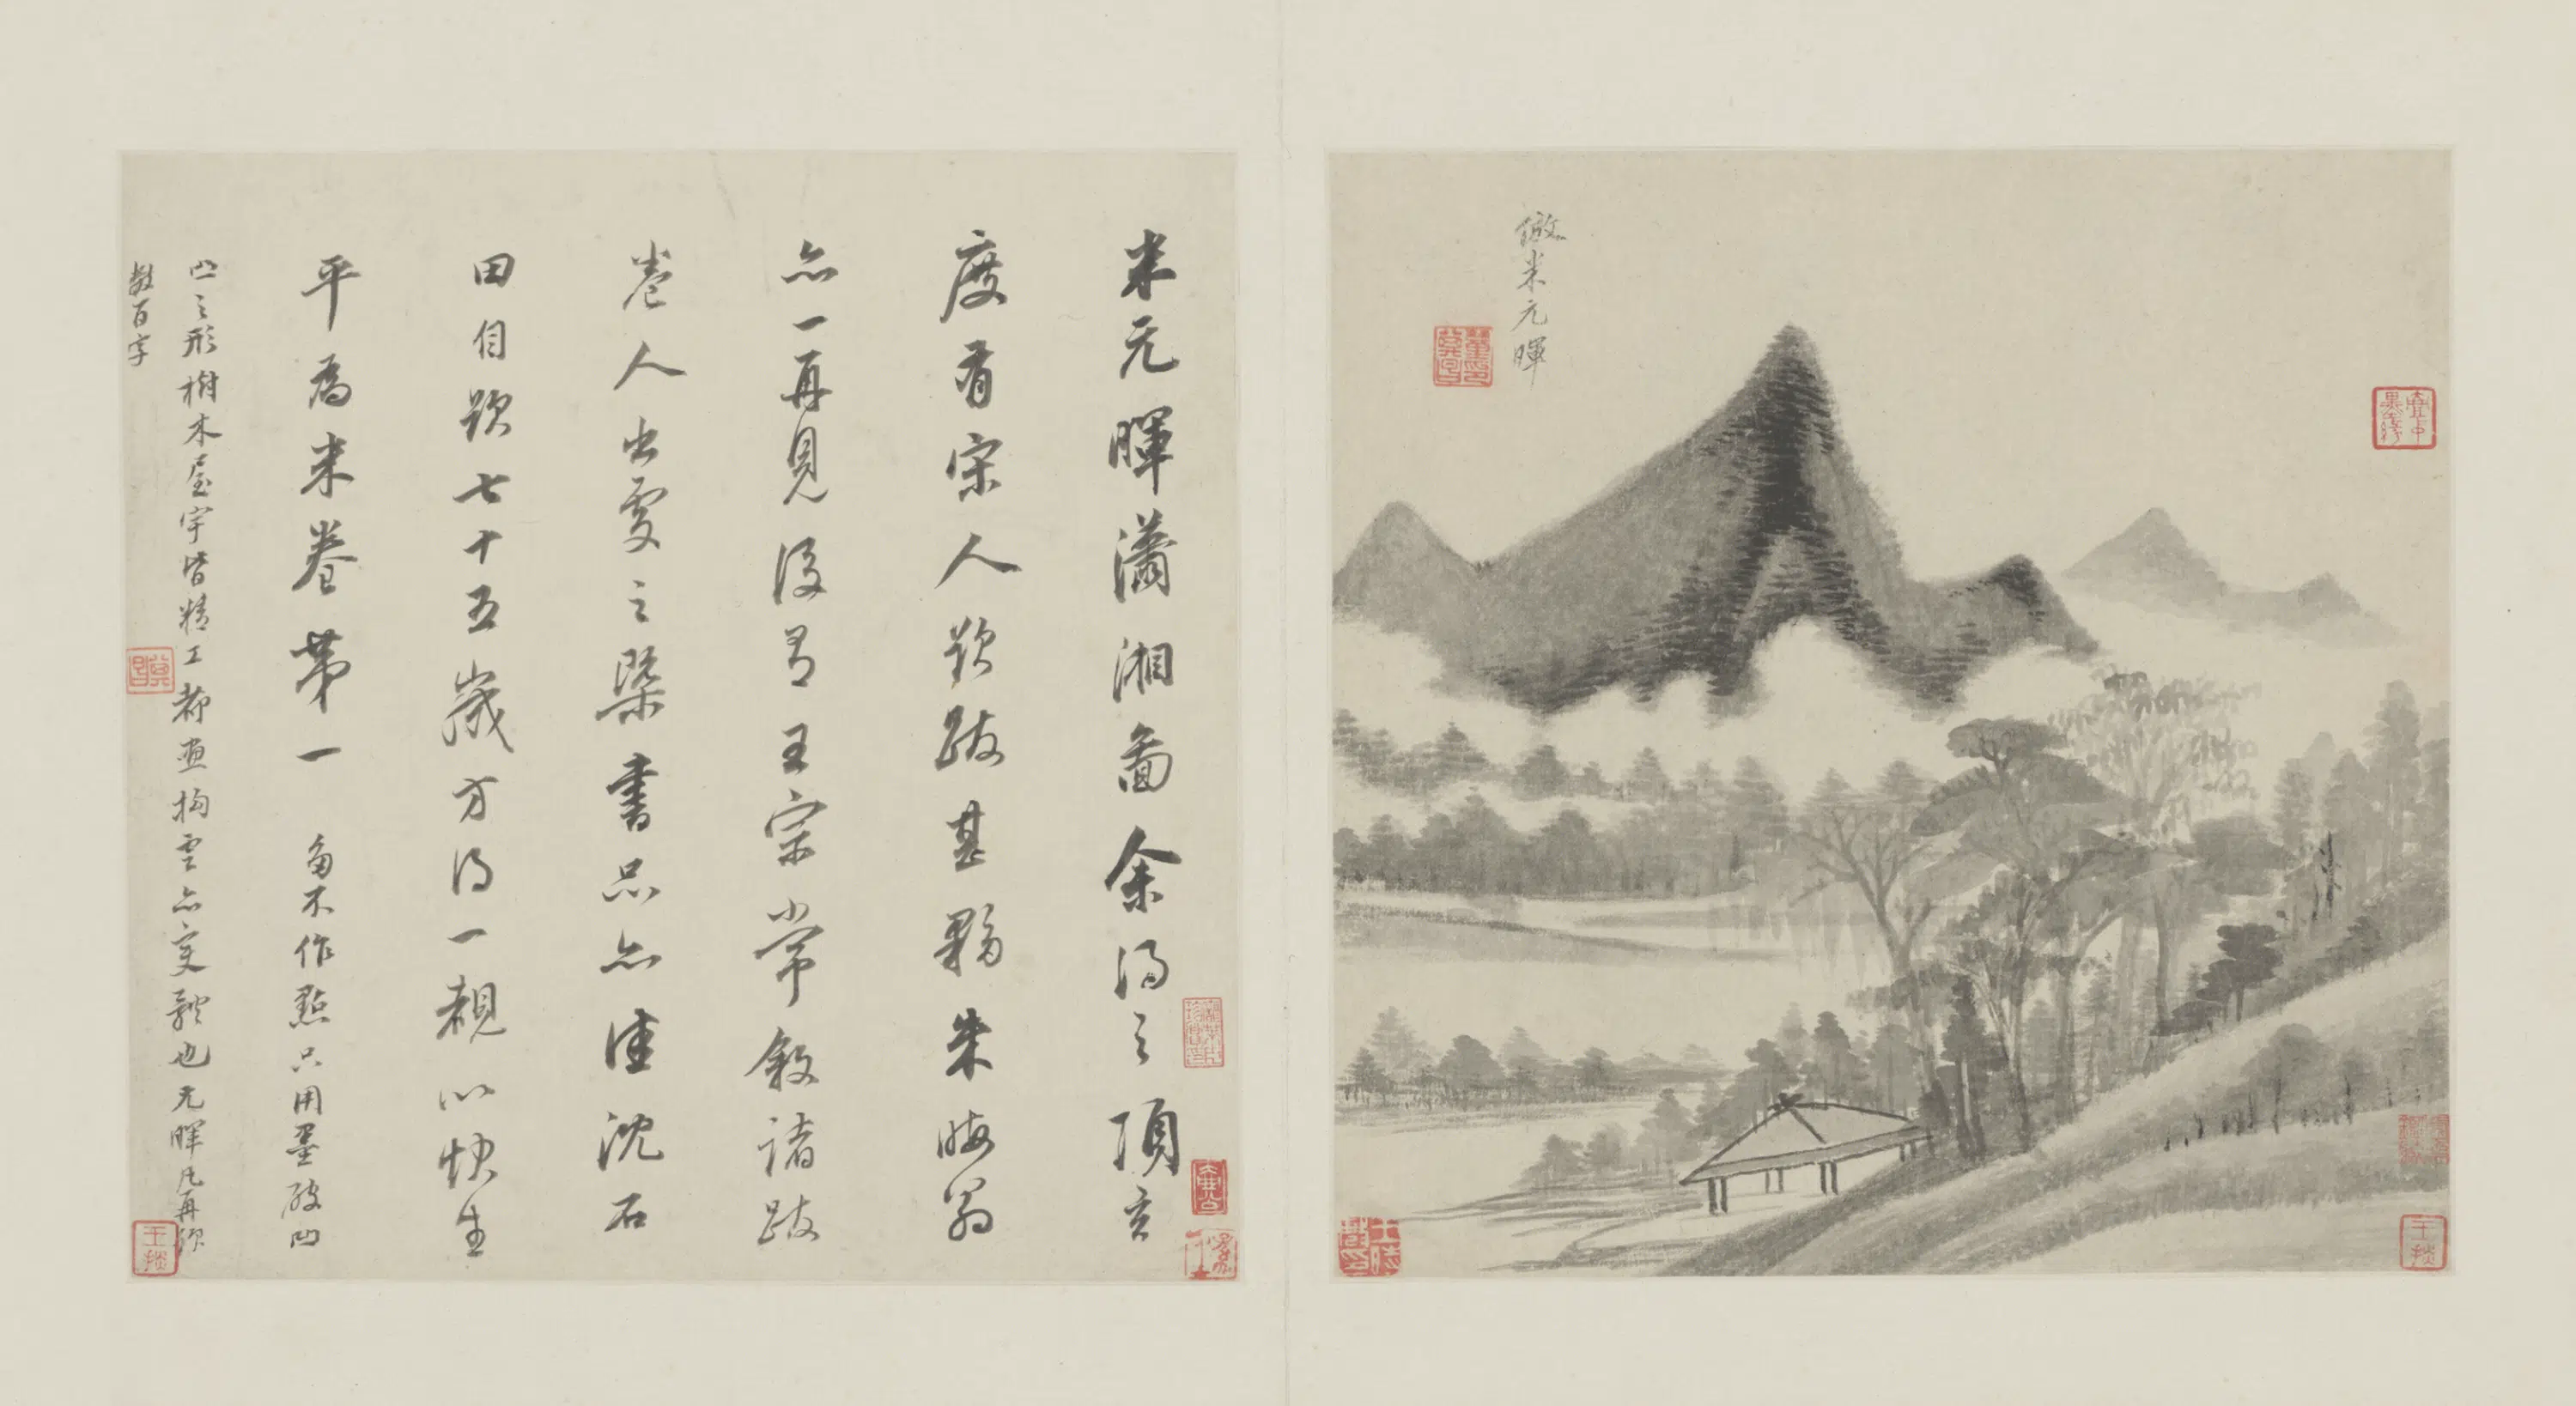 倣米元暉
米元暉瀟湘啚余得之項玄
度有宋人題跋甚夥朱晦翁
亦一再見後有王宗常敘諸跋
卷人出處之槩書品亦佳沈石
田自題七十五歲方得一覩以快生
平為米卷第一 多不作點只用墨破凹
凸之形樹木屋宇皆精工都無构雲亦變體也元暉凡再題
數百字
王掞
王掞